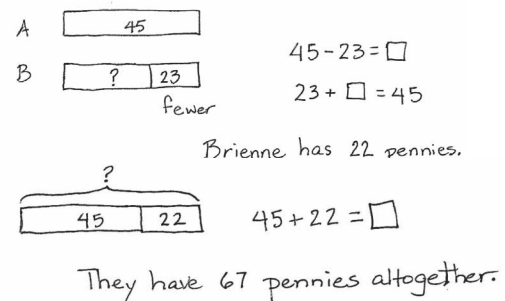 A 45
45 - 23 = □
B ? 23
fewer
23 + □ = 45
Brienne has 22 pennies.
?
45 22
45 + 22 = □
They have 67 pennies altogether.